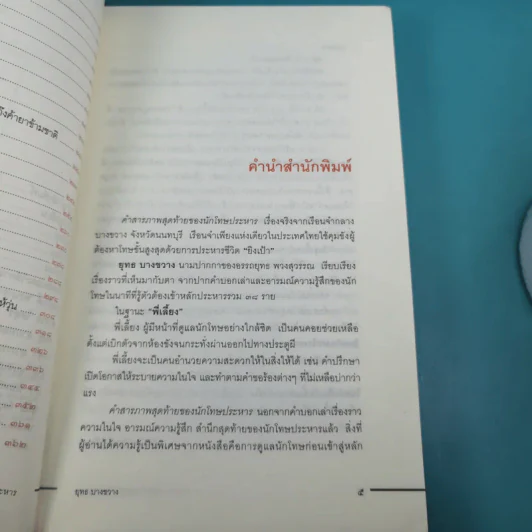 คำนำสำนักพิมพ์
คำสารภาพสุดท้ายของนักโทษประหาร เรื่องจริงจากเรือนจำกลาง
บางขวาง จังหวัดนนทบุรี เรือนจำเพียงแห่งเดียวในประเทศไทยใช้คุมขังผู้
ต้องหาโทษขั้นสูงสุดด้วยการประหารชีวิต "ยิงเป้า"
ยุทธ บางขวาง นามปากกาของอรรถยุทธ พวงสุวรรณ เรียบเรียง
เรื่องราวที่เห็นมากับตา จากปากคำบอกเล่าและอารมณ์ความรู้สึกของนัก
โทษในนาทีที่รู้ตัวต้องเข้าหลักประหารรวม ๓๘ ราย
ในฐานะ "พี่เลี้ยง"
พี่เลี้ยง ผู้มีหน้าที่ดูแลนักโทษอย่างใกล้ชิด เป็นคนคอยช่วยเหลือ
ตั้งแต่เบิกตัวจากห้องขังจนกระทั่งผ่านออกไปทางประตูผี
พี่เลี้ยงจะเป็นคนอำนวยความสะดวกให้ในสิ่งให้ได้ เช่น คำปรึกษา
เปิดโอกาสให้ระบายความในใจ และทำตามคำขอร้องต่างๆ ที่ไม่เหลือบ่ากว่า
แรง
คำสารภาพสุดท้ายของนักโทษประหาร นอกจากคำบอกเล่าเรื่องราว
ความในใจ อารมณ์ความรู้สึก สำนึกสุดท้ายของนักโทษประหารแล้ว สิ่งที่
ผู้อ่านได้ความรู้เป็นพิเศษจากหนังสือคือการดูแลนักโทษก่อนเข้าสู่หลัก
ยุทธ บางขวาง
๕
ค้ายาข้ามชาติ
๓๔๔
๓๕๒
๓๖๑
๓๖๒